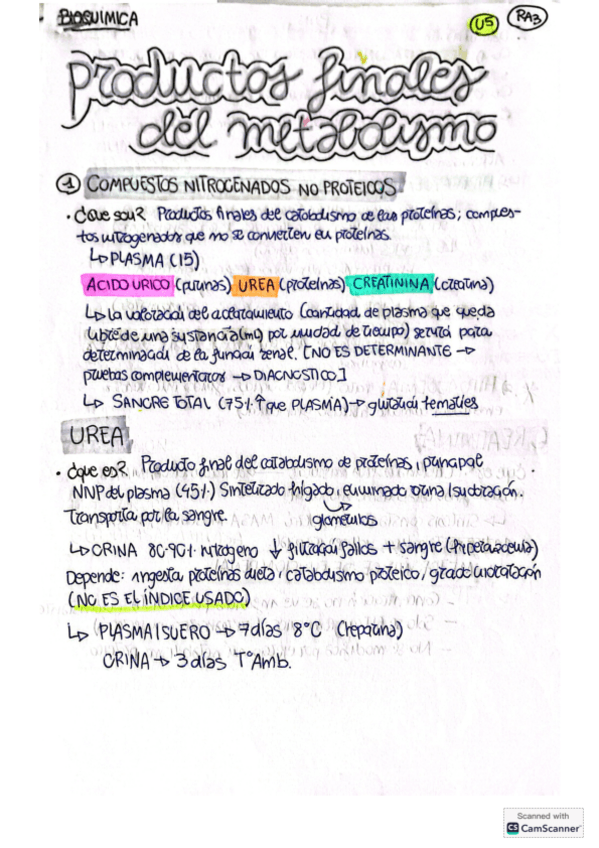 BIOQUIMICA
U5
RA3
productos finales
del metabolismo
1 COMPUESTOS NITROGENADOS NO PROTEICOS
• ¿Que son? Productos finales del catabolismo de las proteínas; compues-
tos nitrogenados que no se convierten en proteínas.
↳ PLASMA (15)
ACIDO URICO (purinas) UREA (proteínas) CREATININA (creatina)
↳ La valoración del aclaramiento (cantidad de plasma que queda
libre de una sustancia (ml) por unidad de tiempo) servirá para
determinación de la función renal. [NO ES DETERMINANTE →
pruebas complementarias → DIAGNOSTICO]
↳ SANGRE TOTAL (75% ↑ que PLASMA) → glutation hematíes
UREA
• ¿que es? Producto final del catabolismo de proteínas, principal
NNP del plasma (45%) Sintetizado hígado, eliminado orina/sudoración.
Transporta por la sangre. glomérulos
↳ ORINA 80-90% nitrógeno ↓ filtración fallos + sangre (hiperazoemia)
Depende: ingesta proteínas dieta, catabolismo proteico, grado hidratación
(NO ES EL ÍNDICE USADO)
↳ PLASMA/SUERO → 7 días 8°C (heparina)
ORINA → 3 días TªAmb.
Scanned with
CS CamScanner